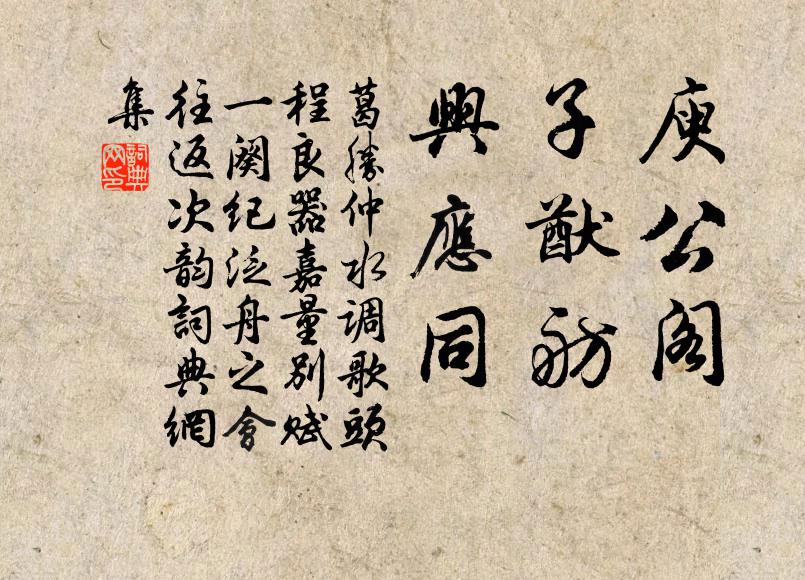 庾公阁
子猷舫
興應同
葛勝仲水调歌頭
程良器嘉量别赋
一阕纪泛舟之會
往返次韵詞典網
集
詞典網印